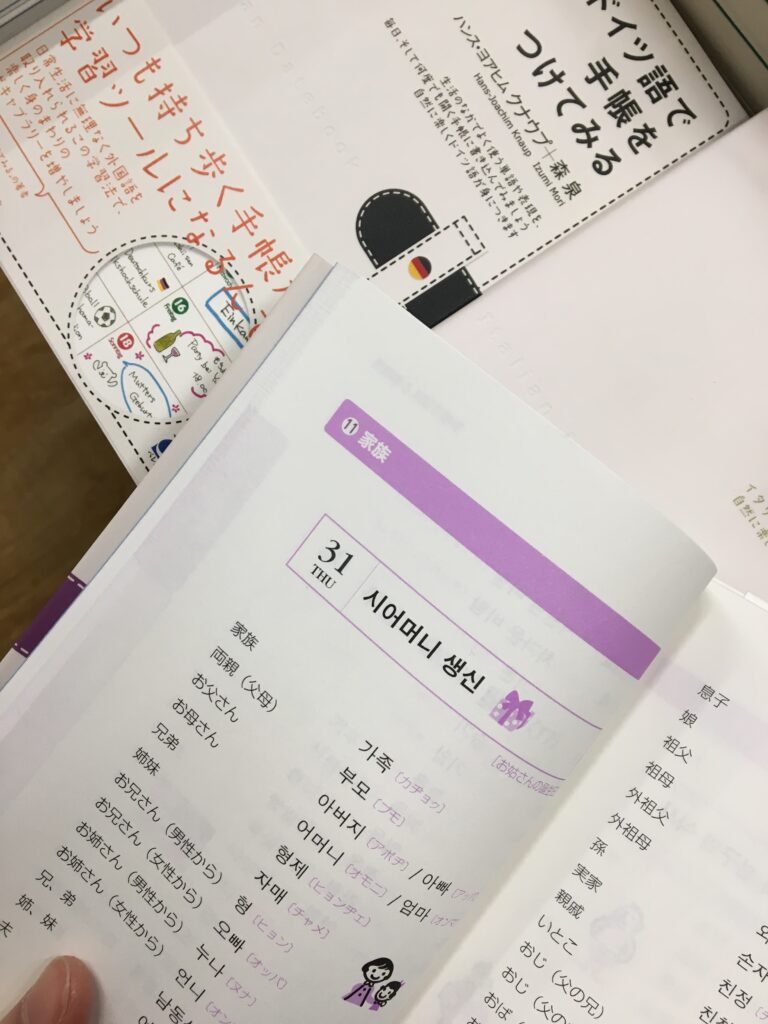 ドイツ語で
手帳を
つけてみる
ハンス・ヨアヒム クナウプ+森 泉
Hans-Joachim Knaup Izumi Mori
生活のなかでよく使う単語や表現を、
毎日、そして何度でも開く手帳に書き込んでみましょう
自然に楽しくドイツ語が身につきます
いつも持ち歩く手帳が
学習ツールになる
日常生活に無理なく外国語を
取り入れられるこの学習法で、
楽しく身のまわりの
ボキャブラリーを増やしましょう
Café
16
Freitag
Einka
Party bei
18.00
18
Sonntag
Mutters
Geburt
⑪ 家族
31
THU
시어머니 생신
家族
가족 [カヂョク]
両親(父母)
부모 [プモ]
お父さん
아버지 [アボヂ] / 아빠
お母さん
어머니 [オモニ] / 엄마
兄弟
형제 [ヒョンヂェ]
姉妹
자매 [チャメ]
お兄さん(男性から)
형 [ヒョン]
お兄さん(女性から)
오빠 [オッパ]
お姉さん(男性から)
누나 [ヌナ]
お姉さん(女性から)
언니
兄、弟
姉、妹
夫
息子
娘
祖父
祖母
外祖父
外祖母
孫
손자
実家
친정
親戚
いとこ
おじ(父の兄)
おじ
おば